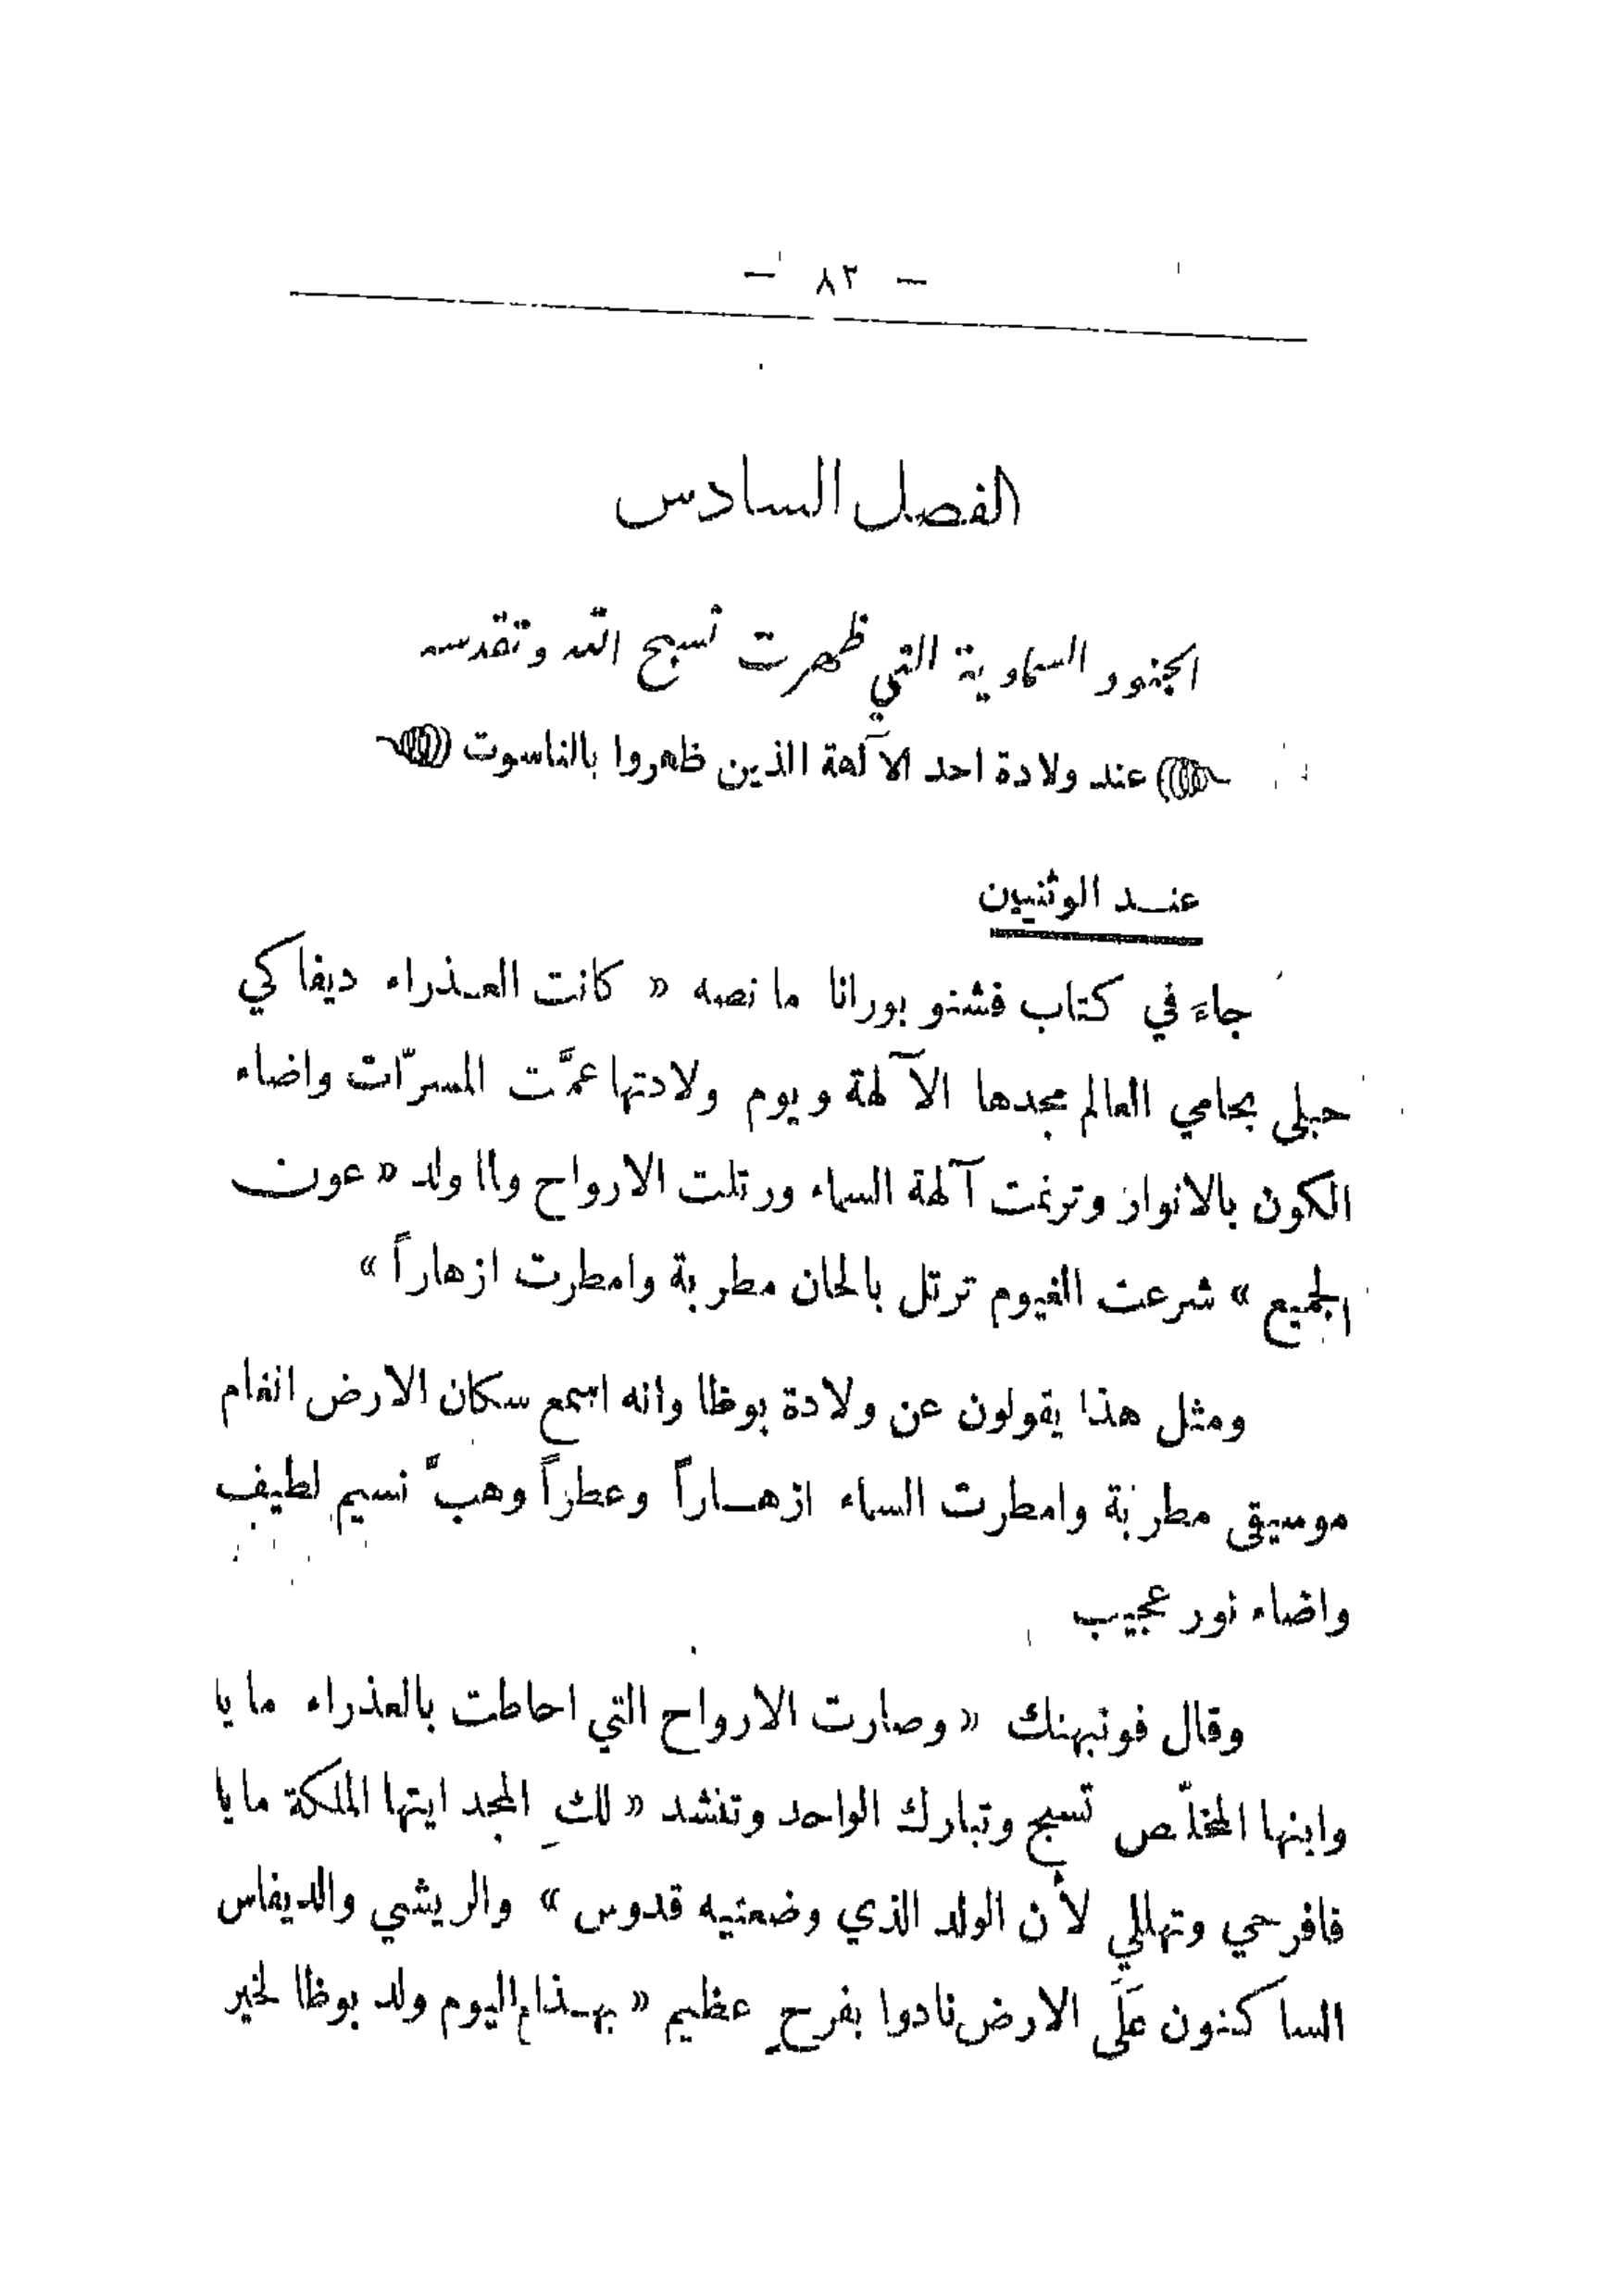 — ٨٣ —
الفصل السادس
الجنود السماوية التي ظهرت تسبح الله وتقدسه
عند ولادة احد الآلهة الذين ظهروا بالناسوت
عند الوثنيين
جاءَ في كتاب فشنو بورانا ما نصه « كانت العذراء ديفاكي
حبلى بحامي العالم مجدها الآلهة ويوم ولادتها عمَّت المسرّات واضاء
الكون بالانوار وترنمت آلهة السماء ورتلت الارواح ولما ولد « عون
الجميع » شرعت الغيوم ترتل بالحان مطربة وامطرت ازهاراً »
ومثل هذا يقولون عن ولادة بوظا وانه اسمع سكان الارض انغام
موسيقى مطربة وامطرت السماء ازهاراً وعطراً وهبَّ نسيم لطيف
واضاء نور عجيب
وقال فونبهنك « وصارت الارواح التي احاطت بالعذراء مايا
وابنها المخلّص تسبح وتبارك الواحد وتنشد « لكِ المجد ايتها الملكة مايا
فافرحي وتهللي لأن الولد الذي وضعتيه قدوس » والريشي والديفاس
الساكنون عَلَى الارض نادوا بفرحٍ عظيم « بهذا اليوم ولد بوظا لخير